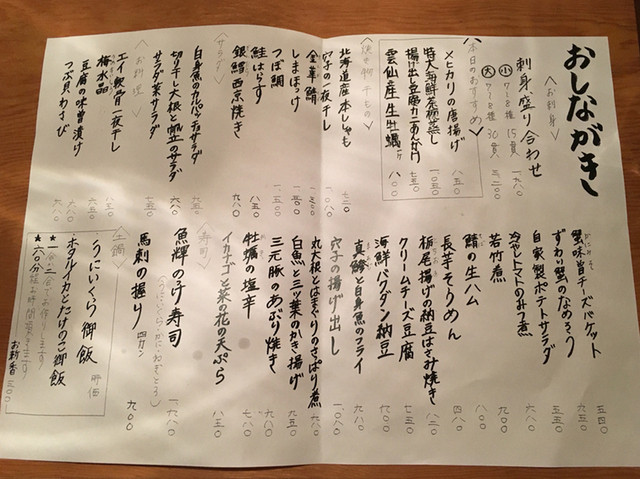 おしながき
〈お刺身〉
刺身盛り合わせ
小 7〜8種 15貫 一、八〇
大 7〜8種 30貫 三、二〇〇
〈本日のおすすめ〉
メヒカリの唐揚げ 八五〇
特大海鮮茶碗蒸し 一、〇五〇
揚げ出し豆腐カニあんかけ 七五〇
雲仙産生牡蠣 一ケ 八〇〇
〈焼き物、干もの〉
北海道産本ししゃも 七三〇
穴子の一夜干し 一、〇八〇
金華鯖
しまほっけ 一、三〇〇
つぼ鯛 一、五〇〇
鮭はらす 八五〇
銀鱈西京焼き 九八〇
〈サラダ〉
白身魚のカルパッチョサラダ 九五〇
切り干し大根と帆立のサラダ
サラダ菜サラダ 七五〇
〈お料理〉
エイ軟骨一夜干し 八五〇
梅水晶 六五〇
豆腐の味噌漬け 六八〇
つぶ貝わさび 六八〇
蟹味噌チーズバケット 五四〇
ずわい蟹のなめろう 九五〇
自家製ポテトサラダ 五五〇
冷やしトマトのみつ煮 六五〇
若竹煮 九〇〇
鯖の生ハム 八〇〇
長芋そうめん 四八〇
栃尾揚げの納豆はさみ焼き 八二〇
クリームチーズ豆腐 六三〇
海鮮バクダン納豆 九五〇
真鯵と白身魚のフライ 九八〇
穴子の揚げ出し 一、〇八〇
丸大根とはまぐりのさっぱり煮 九〇〇
白魚と三ッ葉のかき揚げ 九五〇
三元豚のあぶり焼き 九八〇
牡蠣の塩辛 七八〇
イカナゴと菜の花の天ぷら 八五〇
〈寿司〉
魚輝のっけ寿司 一、六八〇
馬刺の握り 四カン 九〇〇
〈土鍋〉
うにいくら御飯 時価
ホタルイカとたけのこ御飯
お新香 三〇〇